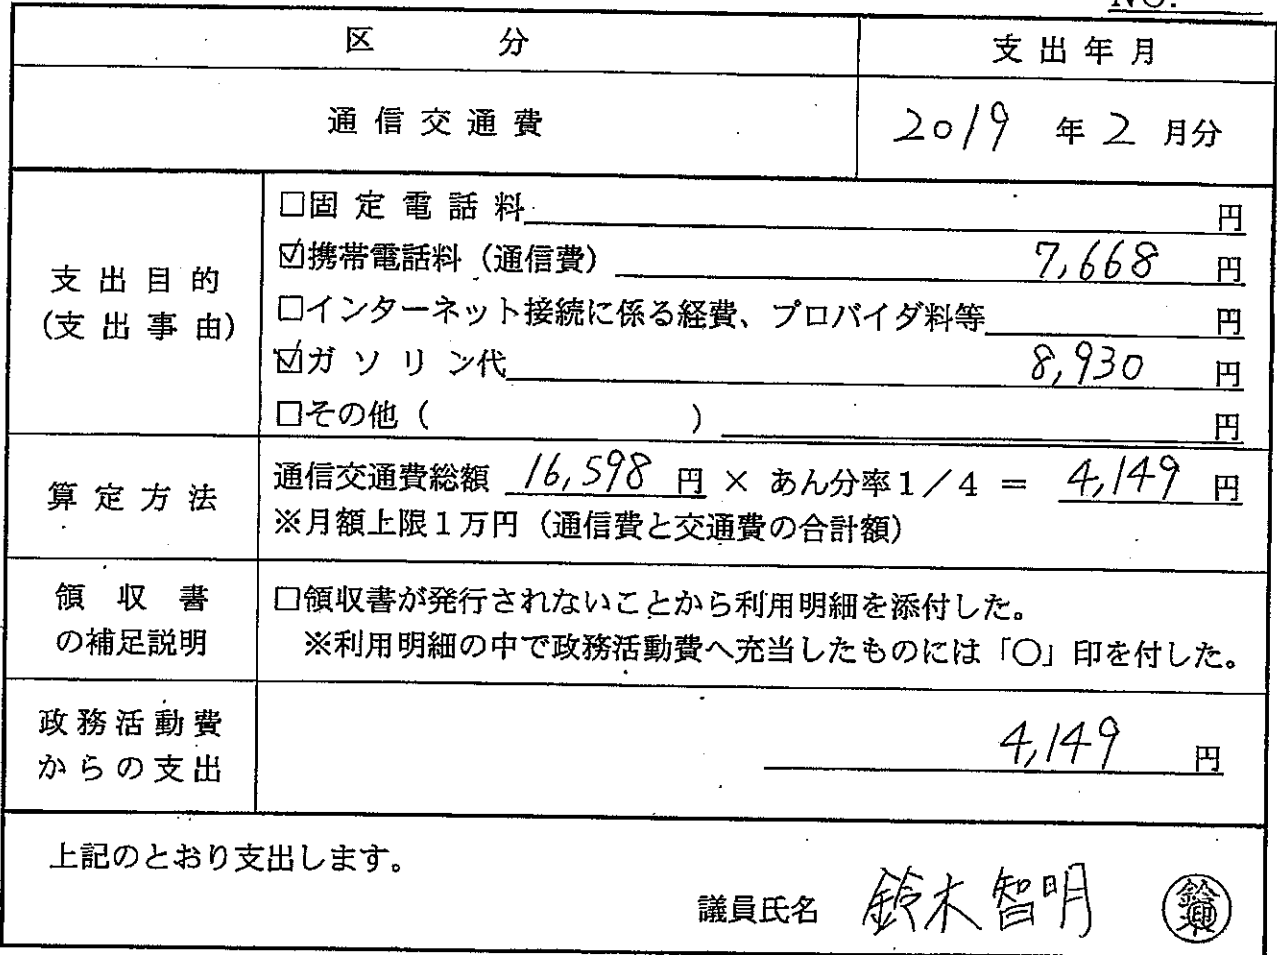 NO.
区 分 支出年月
通信交通費 2019 年 2 月分
支出目的
(支出事由)
□固定電話料 円
☑携帯電話料（通信費） 7,668 円
□インターネット接続に係る経費、プロバイダ料等 円
☑ガソリン代 8,930 円
□その他（ ） 円
算定方法
通信交通費総額 16,598 円 × あん分率1／4 ＝ 4,149 円
※月額上限1万円（通信費と交通費の合計額）
領収書
の補足説明
□領収書が発行されないことから利用明細を添付した。
※利用明細の中で政務活動費へ充当したものには「○」印を付した。
政務活動費
からの支出
4,149 円
上記のとおり支出します。
議員氏名 鈴木智明